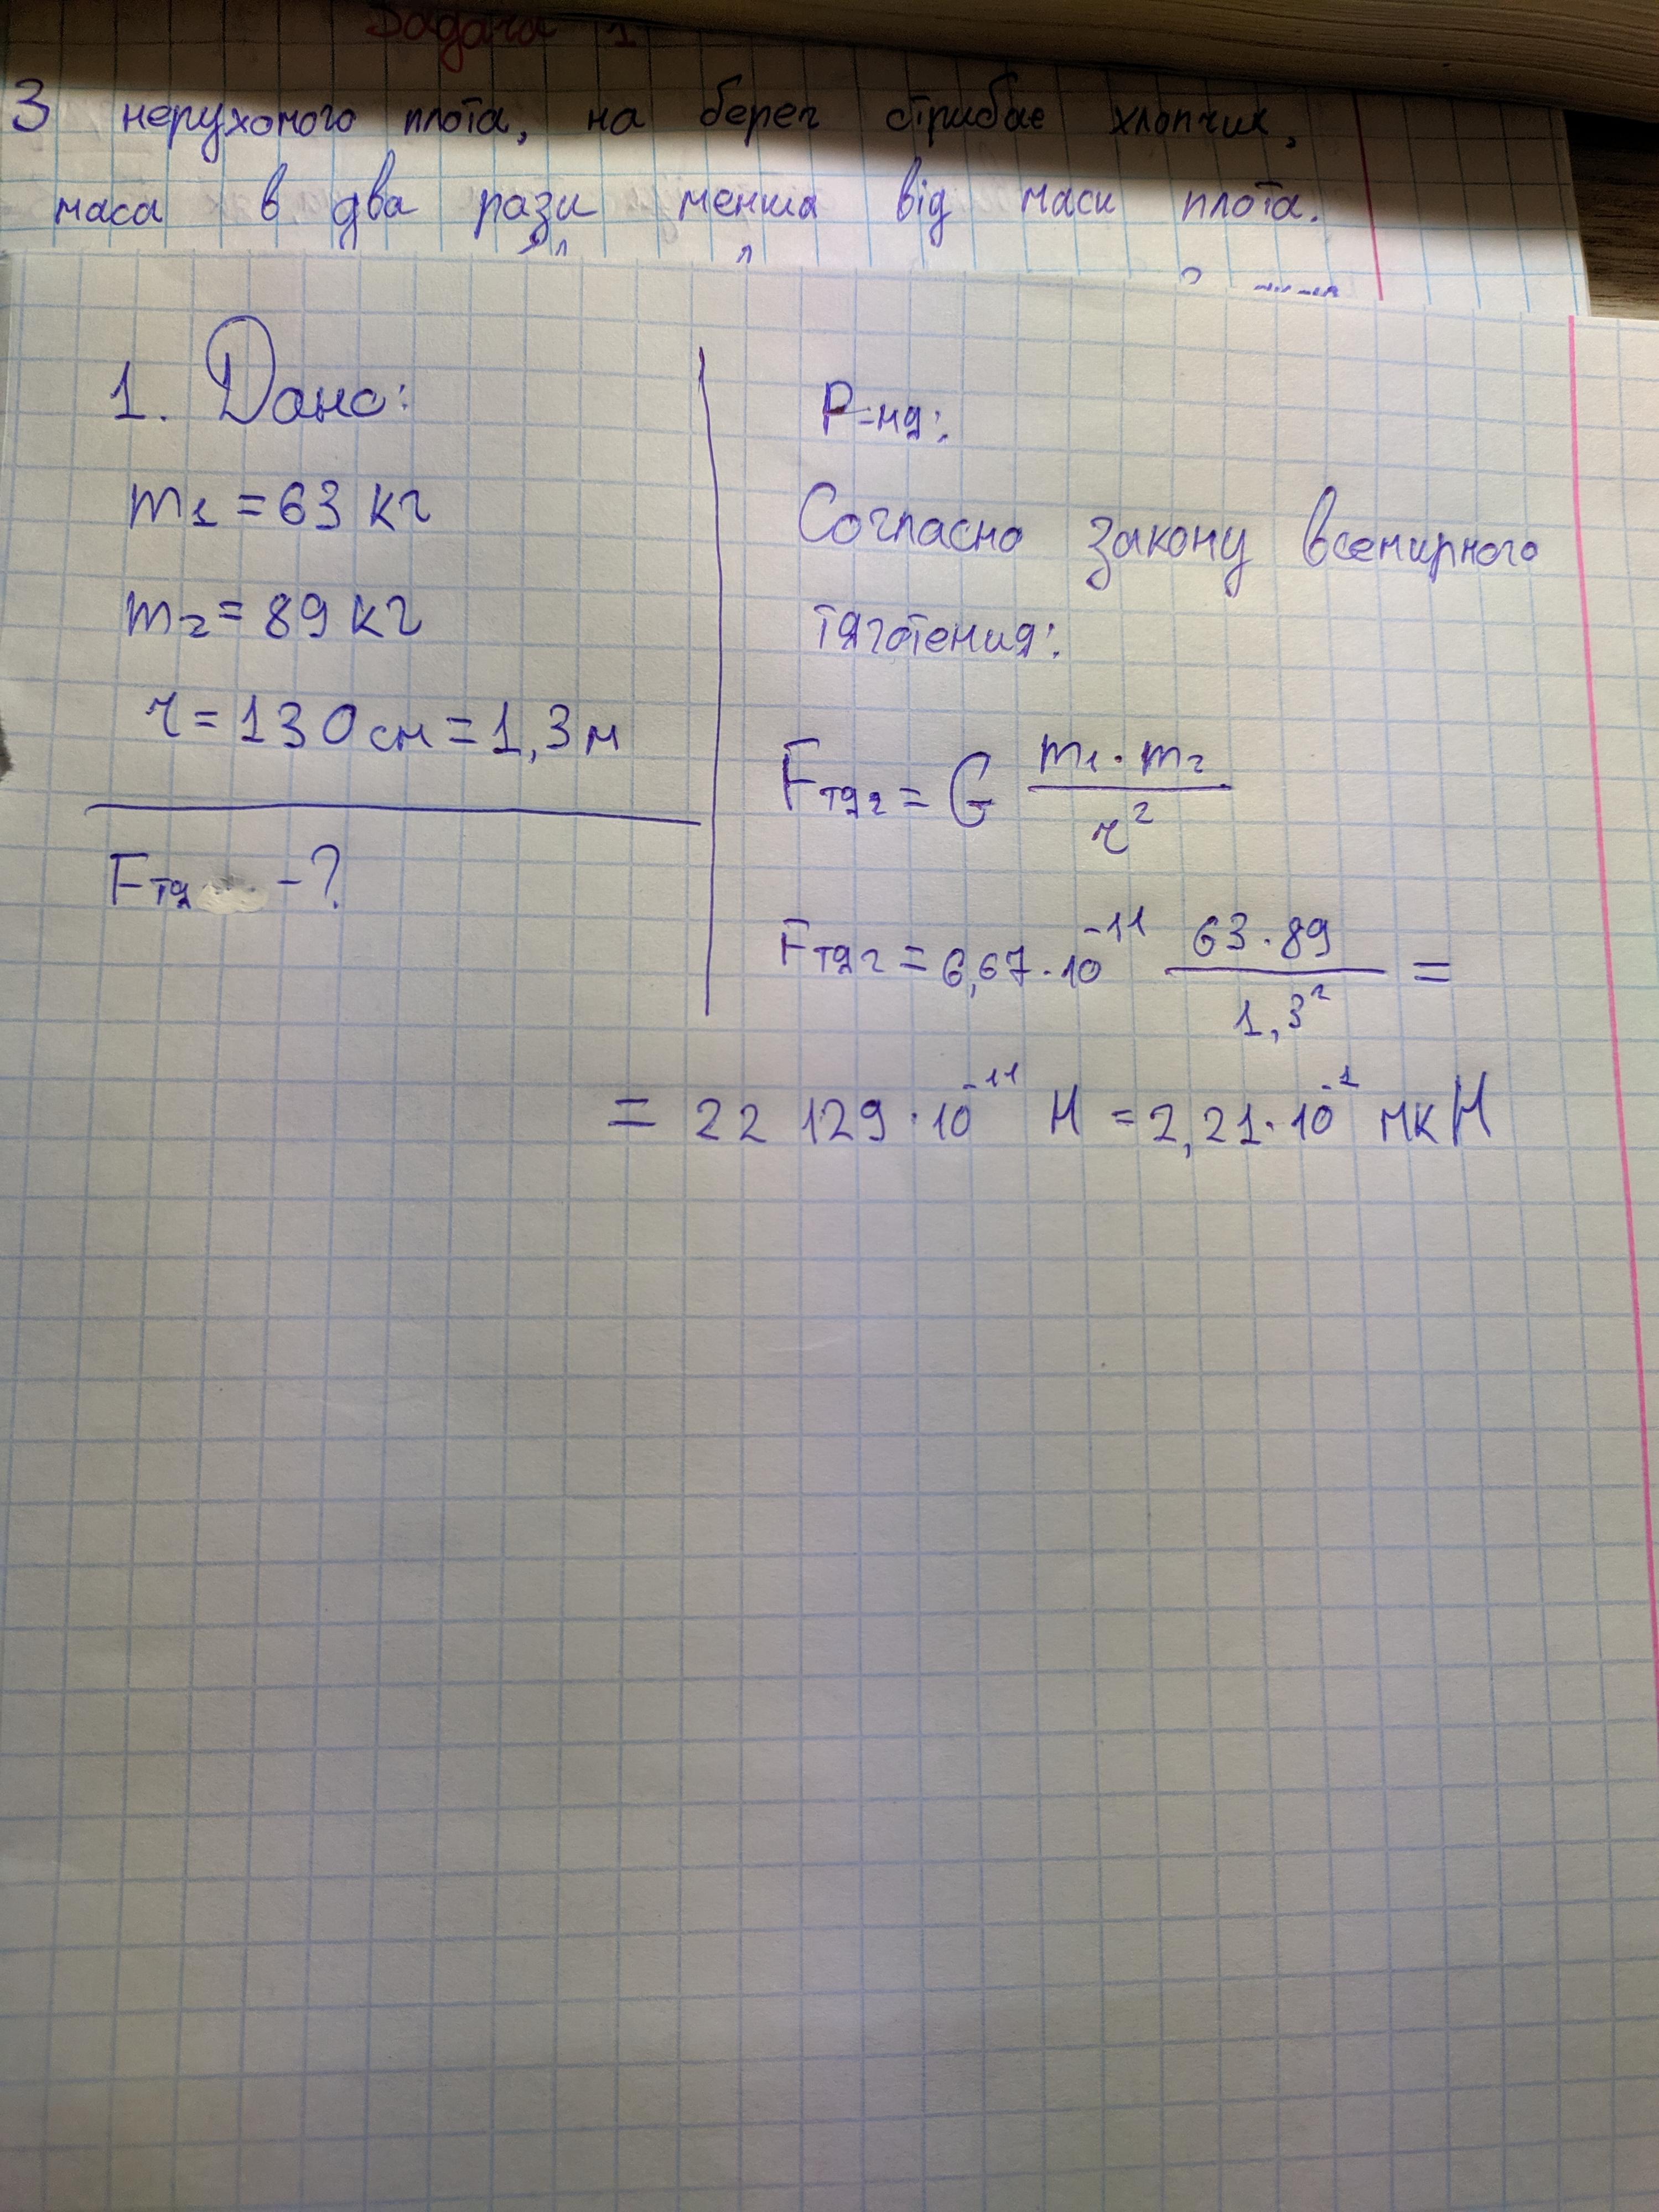 Задача 1
З нерухомого плота, на берег стрибає хлопчик,
маса в два рази менша від маси плота.
1. Дано:
m₁ = 63 кг
m₂ = 89 кг
r = 130 см = 1,3 м
Fтя - ?
Р-ня:
Согласно закону всемирного
тяготения:
Fтяг = G m₁ · m₂ / r²
Fтяг = 6,67 · 10⁻¹¹ 63 · 89 / 1,3² =
= 22 129 · 10⁻¹¹ Н = 2,21 · 10⁻¹ мкН